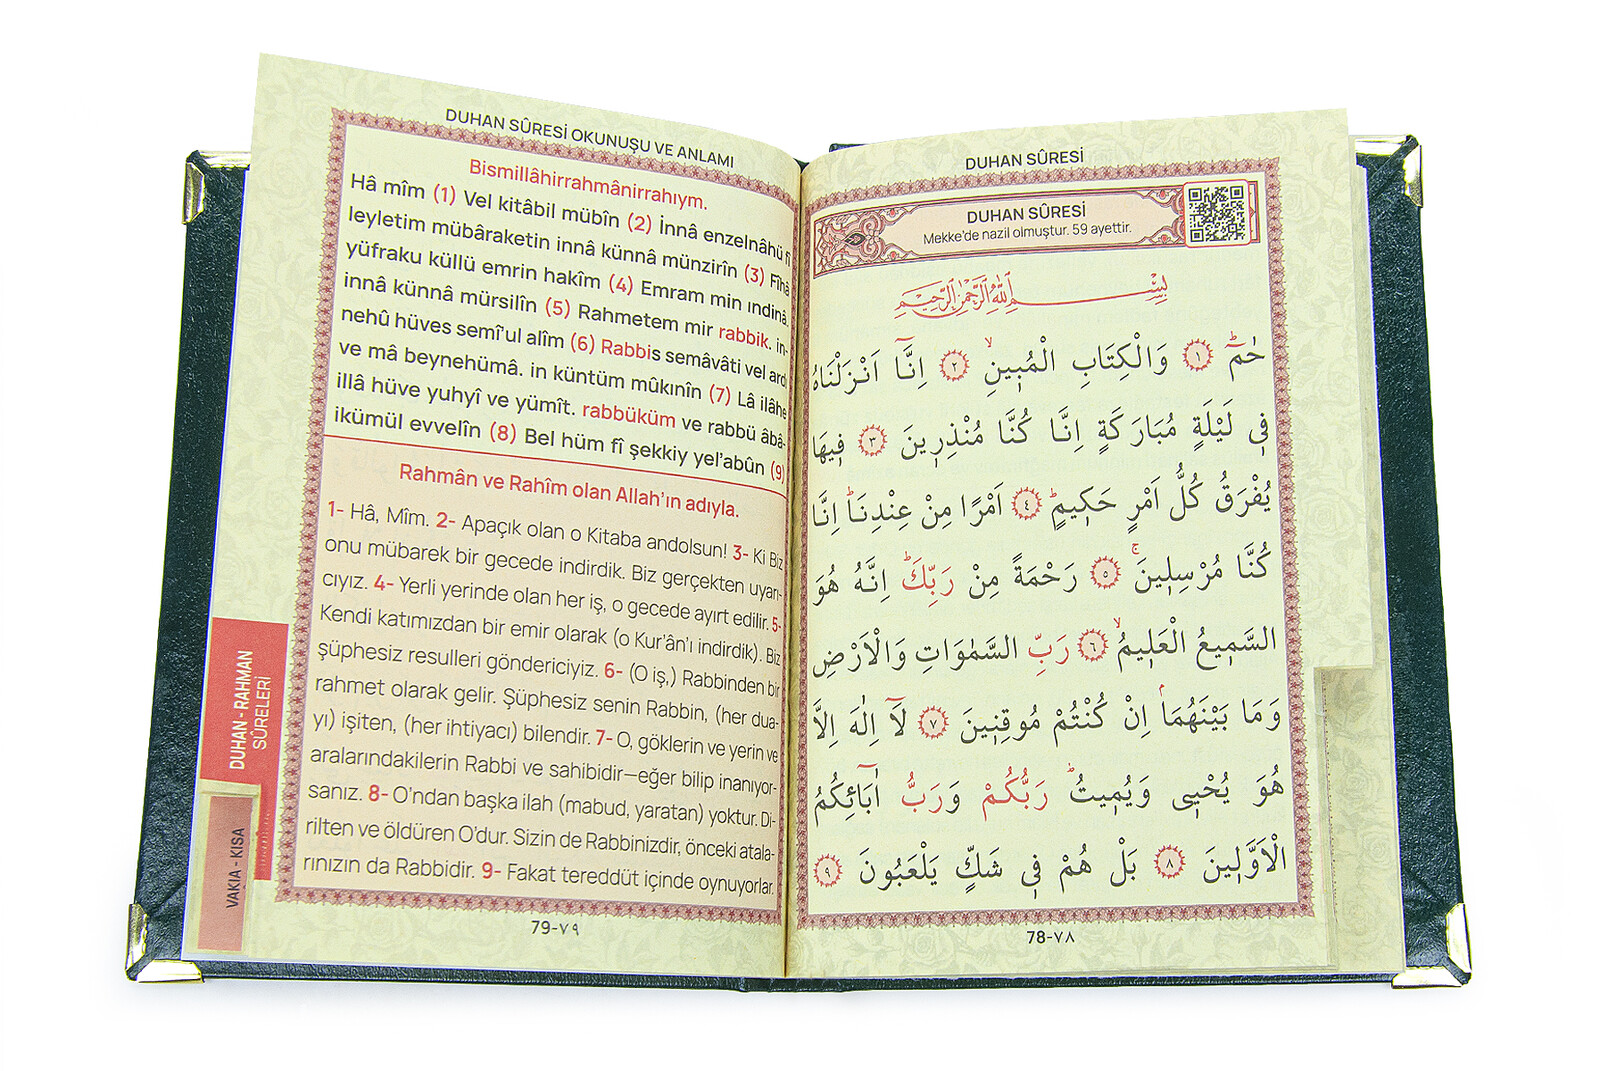 DUHAN SÛRESİ OKUNUŞU VE ANLAMI
Bismillâhirrahmânirrahıym.
Hâ mîm (1) Vel kitâbil mübîn (2) İnnâ enzelnâhü fî
leyletim mübâraketin innâ künnâ münzirîn (3) Fîhâ
yüfraku küllü emrin hakîm (4) Emram min ındinâ,
innâ künnâ mürsilîn (5) Rahmetem mir rabbik. in-
nehû hüves semî'ul alîm (6) Rabbis semâvâti vel ardı
ve mâ beynehümâ. in küntüm mûkınîn (7) Lâ ilâhe
illâ hüve yuhyî ve yümît. rabbüküm ve rabbü âbâ-
ikümül evvelîn (8) Bel hüm fî şekkiy yel'abûn (9)
Rahmân ve Rahîm olan Allah'ın adıyla.
1- Hâ, Mîm. 2- Apaçık olan o Kitaba andolsun! 3- Ki Biz
onu mübarek bir gecede indirdik. Biz gerçekten uyarı-
cıyız. 4- Yerli yerinde olan her iş, o gecede ayırt edilir. 5-
Kendi katımızdan bir emir olarak (o Kur'ân'ı indirdik). Biz
şüphesiz resulleri göndericiyiz. 6- (O iş,) Rabbinden bir
rahmet olarak gelir. Şüphesiz senin Rabbin, (her dua-
yı) işiten, (her ihtiyacı) bilendir. 7- O, göklerin ve yerin ve
aralarındakilerin Rabbi ve sahibidir—eğer bilip inanıyor-
sanız. 8- O'ndan başka ilah (mabud, yaratan) yoktur. Di-
rilten ve öldüren O'dur. Sizin de Rabbinizdir, önceki atala-
rınızın da Rabbidir. 9- Fakat tereddüt içinde oynuyorlar.
79-٧٩
DUHAN - RAHMAN
SÛRELERİ
VAKIA - KISA
DUHAN SÛRESİ
DUHAN SÛRESİ
Mekke'de nazil olmuştur. 59 ayettir.
بِسْمِ اللّٰهِ الرَّحْمٰنِ الرَّحِيمِ
حٰمٓ ۚ ﴿١﴾ وَالْكِتَابِ الْمُبٖينِ ۙ ﴿٢﴾ اِنَّٓا اَنْزَلْنَاهُ
فٖي لَيْلَةٍ مُبَارَكَةٍ اِنَّا كُنَّا مُنْذِرٖينَ ﴿٣﴾ فٖيهَا
يُفْرَقُ كُلُّ اَمْرٍ حَكٖيمٍ ۜ ﴿٤﴾ اَمْرًا مِنْ عِنْدِنَا ۜ اِنَّا
كُنَّا مُرْسِلٖينَ ۚ ﴿٥﴾ رَحْمَةً مِنْ رَبِّكَ ۜ اِنَّهُ هُوَ
السَّمٖيعُ الْعَلٖيمُ ۙ ﴿٦﴾ رَبِّ السَّمٰوَاتِ وَالْاَرْضِ
وَمَا بَيْنَهُمَا ۢ اِنْ كُنْتُمْ مُوقِنٖينَ ﴿٧﴾ لَٓا اِلٰهَ اِلَّا
هُوَ يُحْيٖي وَيُمٖيتُ ۜ رَبُّكُمْ وَرَبُّ اٰبَٓائِكُمُ
الْاَوَّلٖينَ ﴿٨﴾ بَلْ هُمْ فٖي شَكٍّ يَلْعَبُونَ ﴿٩﴾
78-٧٨